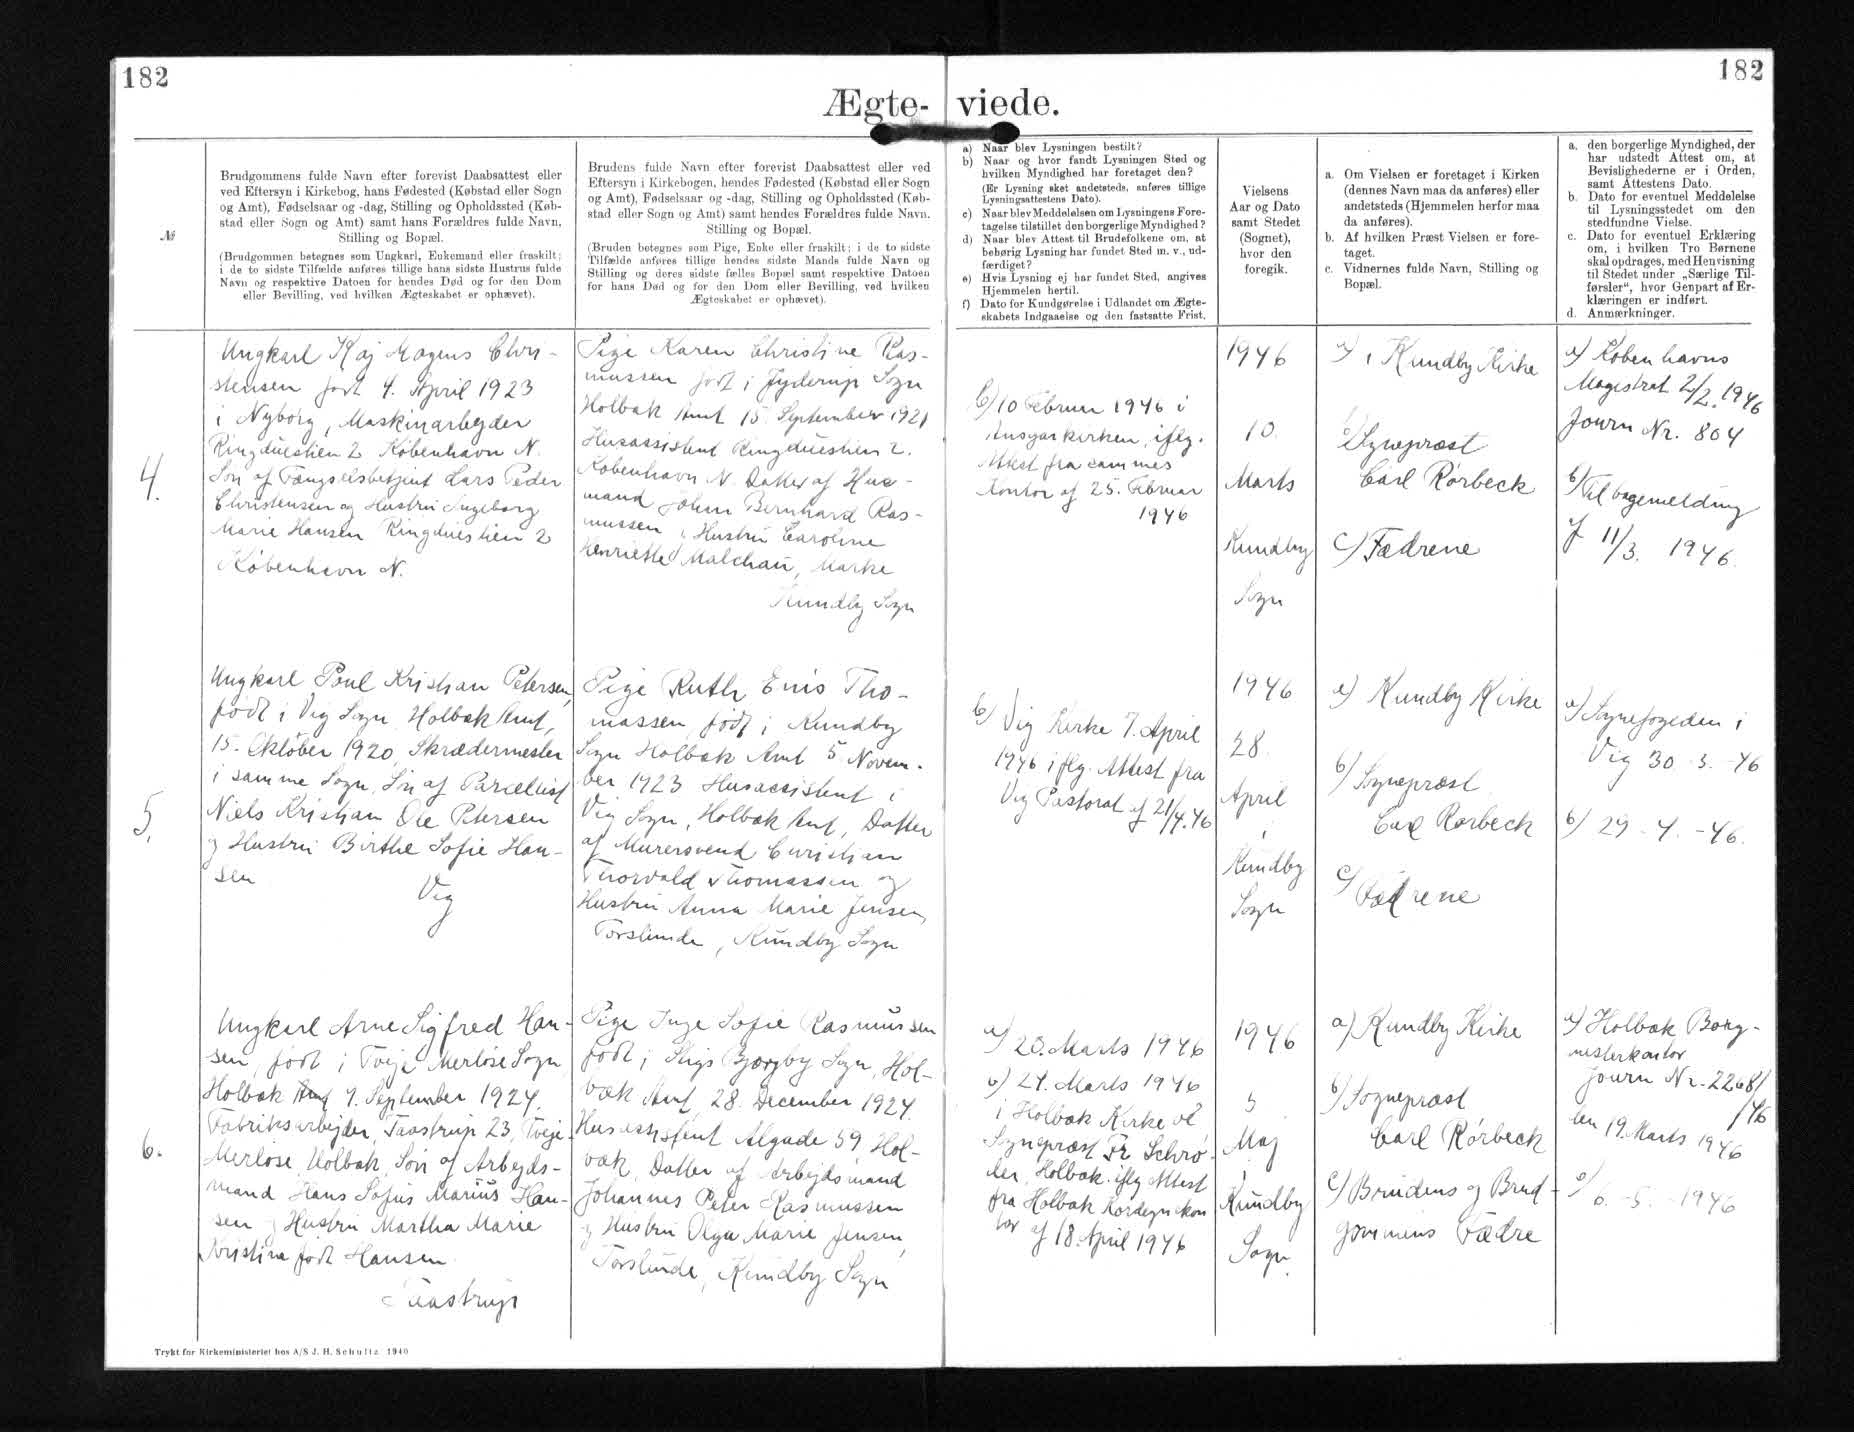 182
182
Ægte- viede.
№
Brudgommens fulde Navn efter forevist Daabsattest eller
ved Eftersyn i Kirkebog, hans Fødested (Købstad eller Sogn
og Amt), Fødselsaar og -dag, Stilling og Opholdssted (Køb-
stad eller Sogn og Amt) samt hans Forældres fulde Navn,
Stilling og Bopæl.
(Brudgommen betegnes som Ungkarl, Enkemand eller fraskilt;
i de to sidste Tilfælde anføres tillige hans sidste Hustrus fulde
Navn og respektive Datoen for hendes Død og for den Dom
eller Bevilling, ved hvilken Ægteskabet er ophævet).
Brudens fulde Navn efter forevist Daabsattest eller ved
Eftersyn i Kirkebogen, hendes Fødested (Købstad eller Sogn
og Amt), Fødselsaar og -dag, Stilling og Opholdssted (Køb-
stad eller Sogn og Amt) samt hendes Forældres fulde Navn,
Stilling og Bopæl.
(Bruden betegnes som Pige, Enke eller fraskilt; i de to sidste
Tilfælde anføres tillige hendes sidste Mands fulde Navn og
Stilling og deres sidste fælles Bopæl samt respektive Datoen
for hans Død og for den Dom eller Bevilling, ved hvilken
Ægteskabet er ophævet).
a) Naar blev Lysningen bestilt?
b) Naar og hvor fandt Lysningen Sted og
hvilken Myndighed har foretaget den?
(Er Lysning sket andetsteds, anføres tillige
Lysningsattestens Dato).
c) Naar blev Meddelelsen om Lysningens Fore-
tagelse tilstillet den borgerlige Myndighed?
d) Naar blev Attest til Brudefolkene om, at
behørig Lysning har fundet Sted m. v., ud-
færdiget?
e) Hvis Lysning ej har fundet Sted, angives
Hjemmelen hertil.
f) Dato for Kundgørelse i Udlandet om Ægte-
skabets Indgaaelse og den fastsatte Frist.
Vielsens
Aar og Dato
samt Stedet
(Sognet),
hvor den
foregik.
a. Om Vielsen er foretaget i Kirken
(dennes Navn maa da anføres) eller
andetsteds (Hjemmelen herfor maa
da anføres).
b. Af hvilken Præst Vielsen er fore-
taget.
c. Vidnernes fulde Navn, Stilling og
Bopæl.
a. den borgerlige Myndighed, der
har udstedt Attest om, at
Bevislighederne er i Orden,
samt Attestens Dato.
b. Dato for eventuel Meddelelse
til Lysningsstedet om den
stedfundne Vielse.
c. Dato for eventuel Erklæring
om, i hvilken Tro Børnene
skal opdrages, med Henvisning
til Stedet under „Særlige Til-
førsler“, hvor Genpart af Er-
klæringen er indført.
d. Anmærkninger.
4.
Ungkarl Kaj Mogens Chri-
stensen født 4. April 1923
i Nyborg, Maskinarbejder
Ringduestien 2 København N.
Søn af Fængselsbetjent Lars Peder
Christensen og Hustru Ingeborg
Marie Hansen Ringduestien 2
København N.
Pige Karen Christine Ras-
mussen født i Jyderup Sogn
Holbæk Amt 15. September 1921
Husassistent Ringduestien 2.
København N. Datter af Hus-
mand Johan Bernhard Ras-
mussen og Hustru Caroline
Henriette Malchau, Marke
Kundby Sogn
b) 10 Februar 1946 i
Ansgarkirken, iflg.
Attest fra sammes
Kontor af 25. Februar
1946
1946
10.
Marts
Kundby
Sogn
a) i Kundby Kirke
b) Sognepræst
Carl Rørbeck
c) Fædrene
a) Københavns
Magistrat 2/2. 1946
Journ Nr. 804
b) Tilbagemelding
af 11/3. 1946.
5.
Ungkarl Poul Kristian Petersen,
født i Vig Sogn, Holbæk Amt,
15. Oktober 1920, Skrædermester
i samme Sogn, Søn af Parcellist
Niels Kristian Ole Petersen
og Hustru Birthe Sofie Han-
sen
Vig
Pige Ruth Enis Tho-
massen, født i Kundby
Sogn Holbæk Amt 5. Novem-
ber 1923 Husassistent i
Vig Sogn, Holbæk Amt, Datter
af Murersvend Christian
Thorvald Thomassen og
Hustru Anna Marie Jensen,
Torslunde, Kundby Sogn
b) Vig Kirke 7. April
1946 iflg. Attest fra
Vig Pastorat af 21/4.46
1946
28.
April
i
Kundby
Sogn
a) Kundby Kirke
b) Sognepræst
Carl Rørbeck
c) Fædrene
a) Sognefogeden i
Vig 30 - 3. - 46
b) 29 - 4. - 46.
6.
Ungkarl Arne Sigfred Han-
sen, født i Tveje Merløse Sogn
Holbæk Amt 9. September 1924,
Fabriksarbejder, Taastrup 23, Tveje
Merløse, Holbæk, Søn af Arbejds-
mand Hans Sofus Marius Han-
sen og Hustru Martha Marie
Kristine født Hansen
Taastrup
Pige Inge Sofie Rasmussen
født i Stigs Bjergby Sogn, Hol-
bæk Amt, 28. December 1924.
Husassistent Algade 59, Hol-
bæk, Datter af Arbejdsmand
Johannes Peter Rasmussen
og Hustru Olga Marie Jensen,
Torslunde, Kundby Sogn
a) 20. Marts 1946
b) 24. Marts 1946
i Holbæk Kirke ved
Sognepræst Fr Schrø-
der, Holbæk, iflg Attest
fra Holbæk Kordegnekon
tor af 18. April 1946
1946
5
Maj
i
Kundby
Sogn.
a) Kundby Kirke
b) Sognepræst
Carl Rørbeck
c) Brudens og Brud-
gommens Fædre
a) Holbæk Borg-
mesterkontor
Journ Nr. 2268/
/46
den 19. Marts 1946
6. - 5. - 1946
Trykt for Kirkeministeriet hos A/S J. H. Schultz. 1940